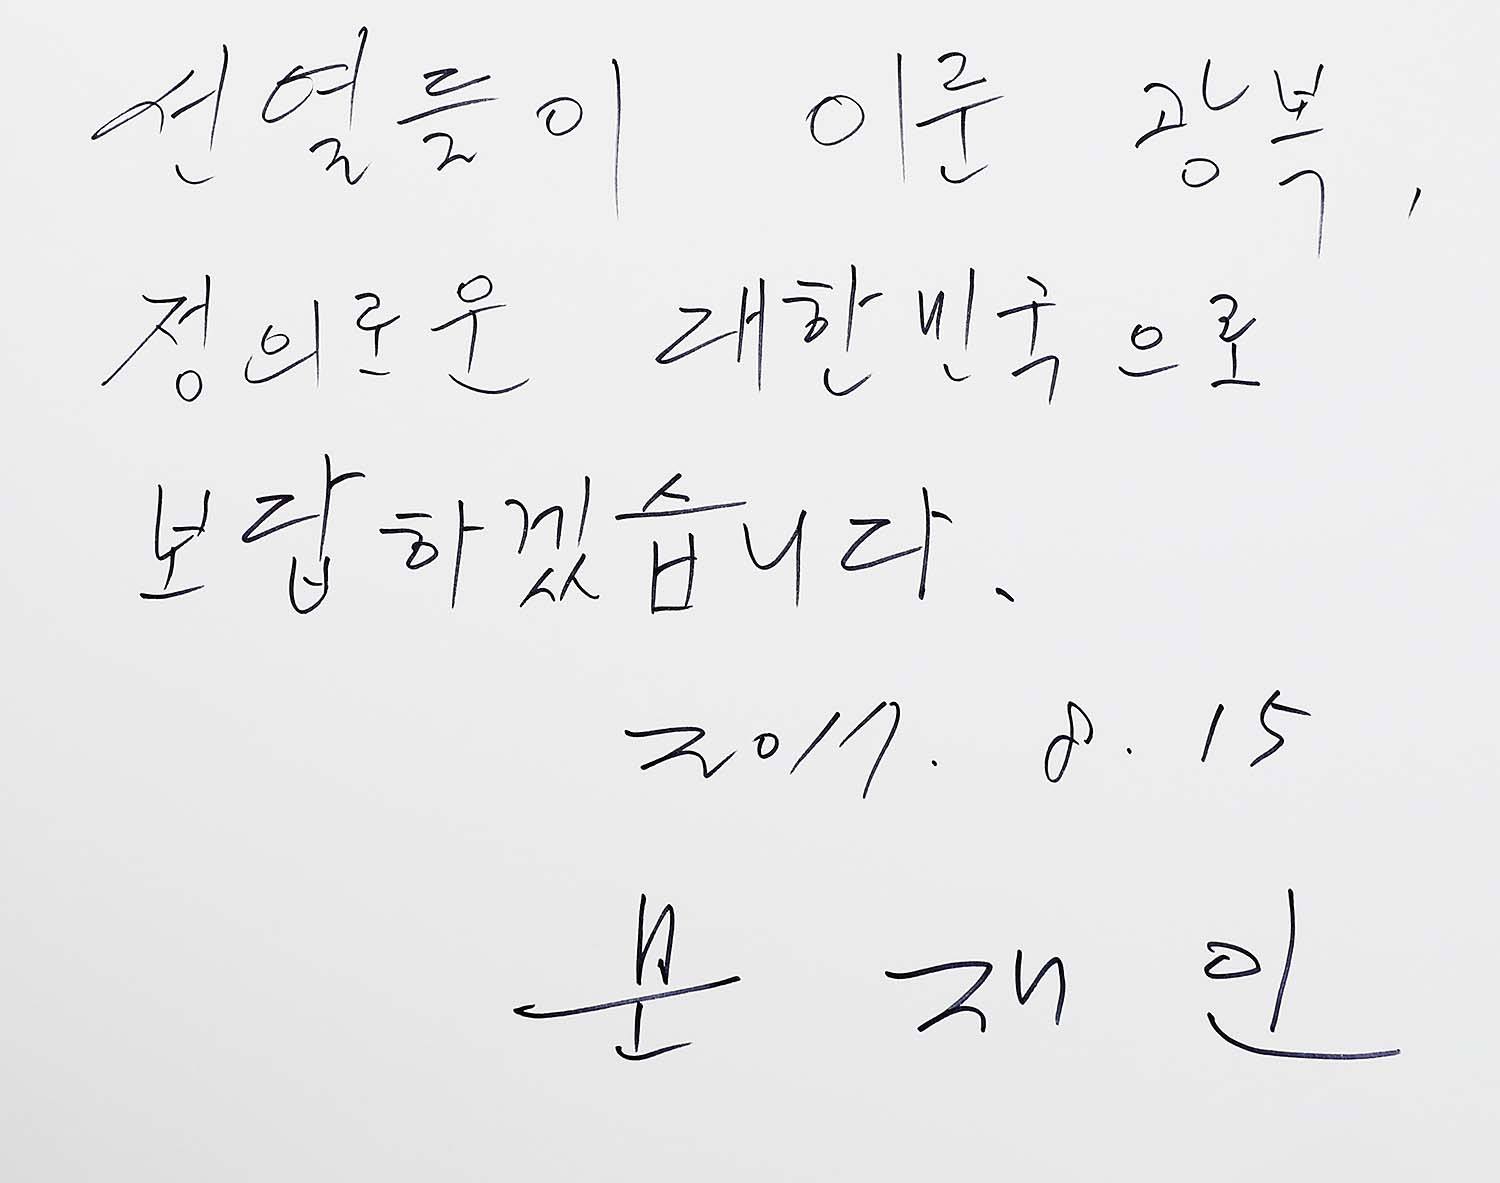 선열들이 이룬 광복,
정의로운 대한민국으로
보답하겠습니다.
2017. 8. 15
문재인